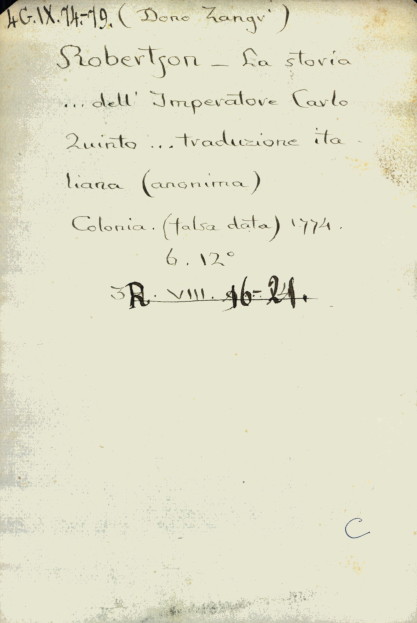 4G.IX.74-79. (Dono Zangri)
Robertson - La storia
... dell' Imperatore Carlo
Quinto ... traduzione ita
liana (anonima)
Colonia. (falsa data) 1774.
6. 12°
3R. VIII. 16-21.
C